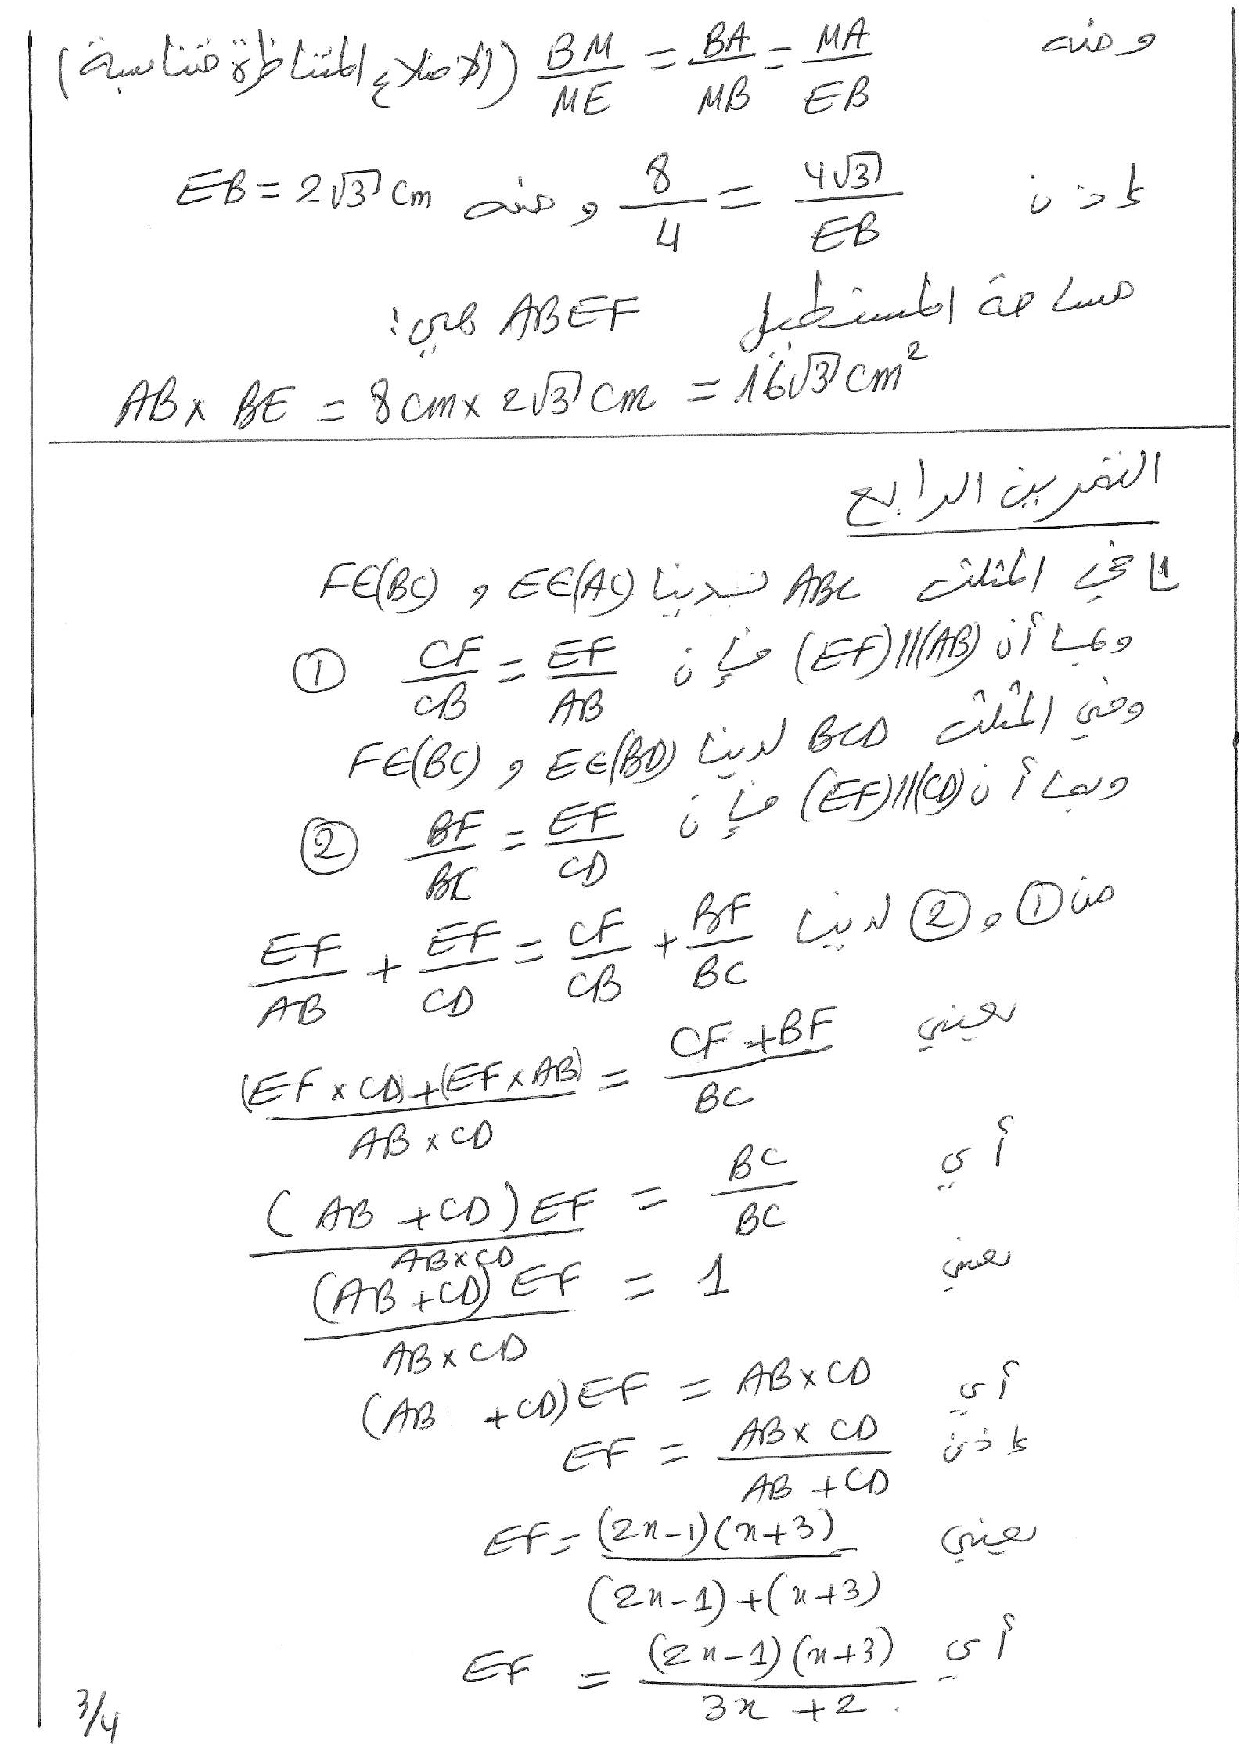 ومنه MA/EB = BA/MB = BM/ME (الأضلاع المتناظرة متناسبة)
إذن 4√3/EB = 8/4 ومنه EB = 2√3 cm
مساحة المستطيل ABEF هي:
AB x BE = 8cm x 2√3 cm = 16√3 cm²
التمرين الرابع
1) في المثلث ABC لدينا E∈(AC) و F∈(BC)
وبما أن (EF)//(AB) فإن EF/AB = CF/CB ①
وفي المثلث BCD لدينا E∈(BD) و F∈(BC)
وبما أن (EF)//(CD) فإن EF/CD = BF/BC ②
من ① و ② لدينا EF/AB + EF/CD = CF/CB + BF/BC
يعني ((EF x CD)+(EF x AB))/(AB x CD) = (CF + BF)/BC
أي ((AB + CD)EF)/(AB x CD) = BC/BC
يعني ((AB + CD)EF)/(AB x CD) = 1
أي (AB + CD)EF = AB x CD
إذن EF = (AB x CD)/(AB + CD)
يعني EF = ((2x-1)(x+3))/((2x-1)+(x+3))
أي EF = ((2x-1)(x+3))/(3x+2)
3/4